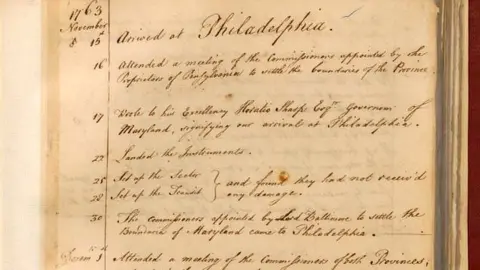 1763
November
15th Arrived at Philadelphia.
16 Attended a meeting of the Commissioners appointed by the
Proprietors of Pensylvania to settle the boundaries of the Province.
17 Wrote to his Excellency Horatio Sharpe Esqr. Governor of
Maryland, signifying our arrival at Philadelphia.
22 Landed the Instruments.
25 Set up the Sector } and found they had not receiv'd
28 Set up the Transit } any damage.
30 The commissioners appointed by Lord Baltimore to settle the
Boundaries of Maryland came to Philadelphia.
1 Attended a meeting of the Commissioners of both Provinces,